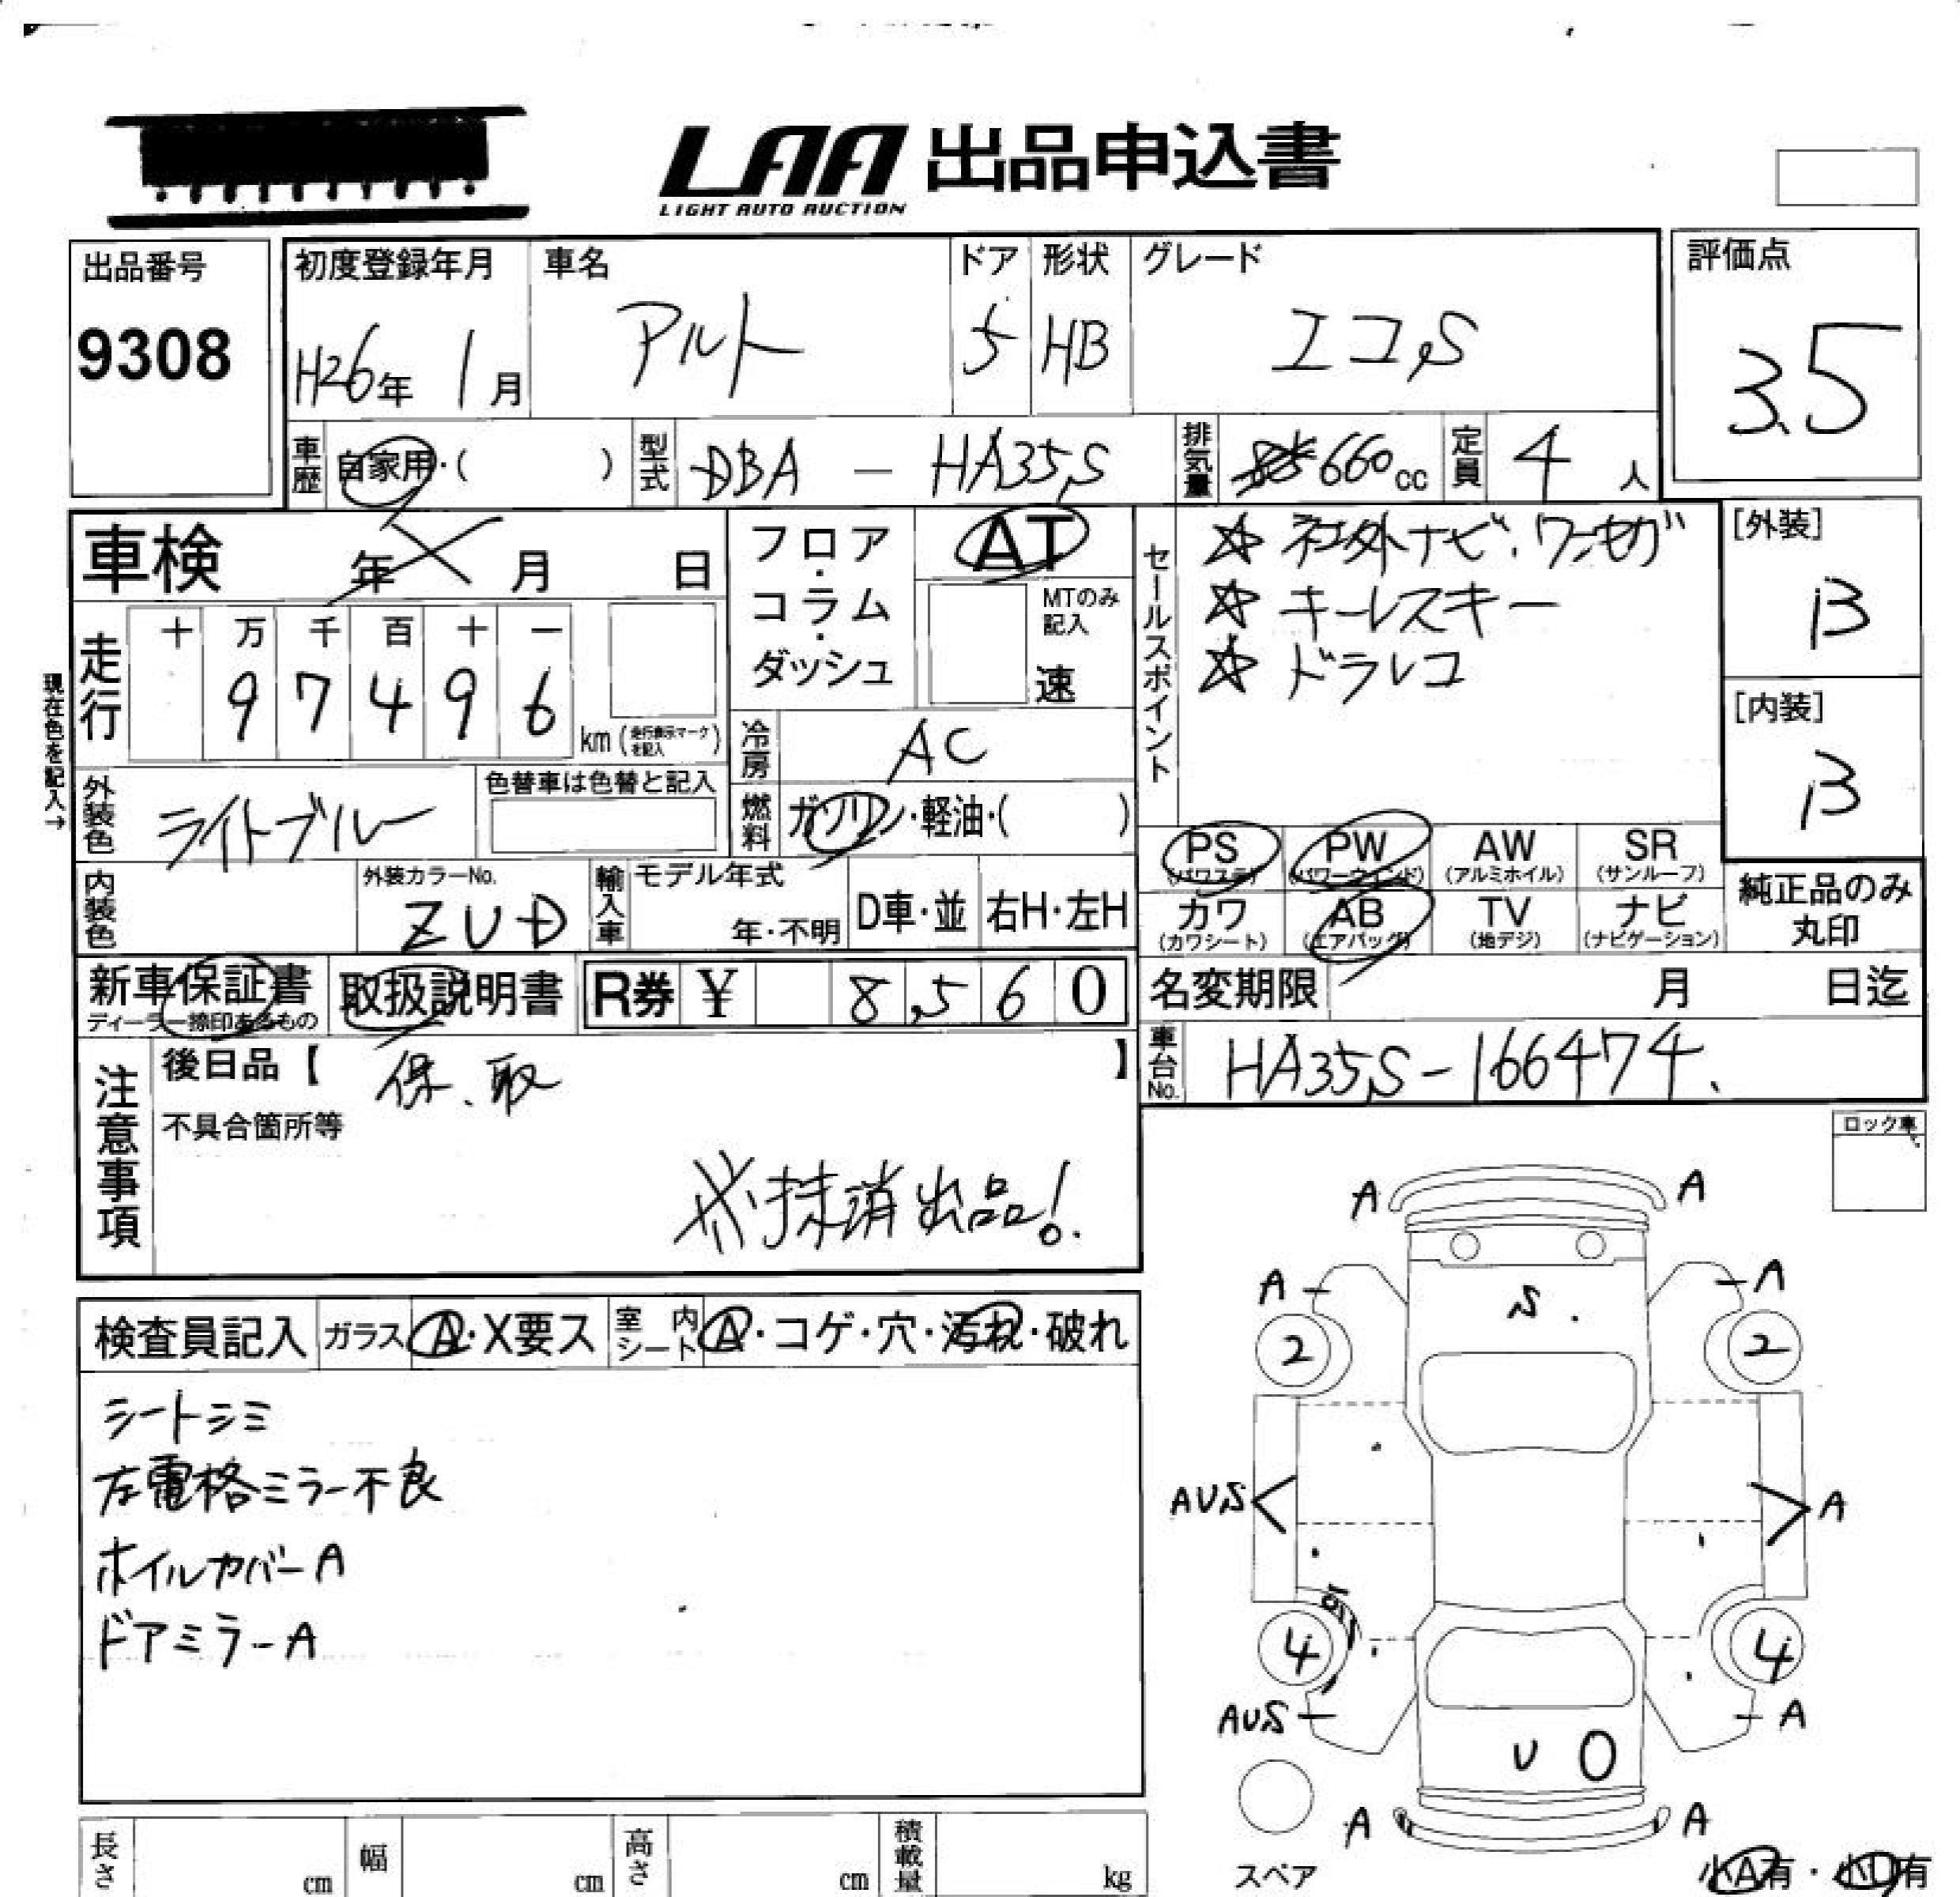 LAA 出品申込書
LIGHT AUTO AUCTION
出品番号
9308
初度登録年月
H26年 1月
車名
アルト
ドア
5
形状
HB
グレード
エコS
評価点
3.5
車歴
自家用・( )
型式
DBA - HA35S
排気量
660cc
定員
4人
車検
年 月 日
走行
十 万 千 百 十 一
9 7 4 9 6
km (走行表示マークを記入)
現在色を記入→
外装色
ライトブルー
色替車は色替と記入
内装色
外装カラーNo.
ZUD
輸入車
モデル年式
年・不明
D車・並
右H・左H
フロア・コラム・ダッシュ
AT
MTのみ記入
速
冷房
AC
燃料
ガソリン・軽油・( )
セールスポイント
☆ 社外ナビ.ワンセグ
☆ キーレスキー
☆ ドラレコ
[外装]
B
[内装]
B
PS (パワステ)
PW (パワーウィンド)
AW (アルミホイル)
SR (サンルーフ)
カワ (カワシート)
AB (エアバッグ)
TV (地デジ)
ナビ (ナビゲーション)
純正品のみ丸印
新車保証書
ディーラー捺印あるもの
取扱説明書
R券 ¥ 8,560
名変期限 月 日迄
車台No.
HA35S-166474.
注意事項
後日品【 保、取 】
不具合箇所等
※抹消出品!
ロック車
検査員記入
ガラス
A・X要ス
室内シート
A・コゲ・穴・汚れ・破れ
シートシミ
左電格ミラー不良
ホイルカバーA
ドアミラーA
A A
A A
S
2 2
AUS A
4 4
AUS A
U O
A A
スペア
小A有・小U有
長さ cm
幅 cm
高さ cm
積載量 kg